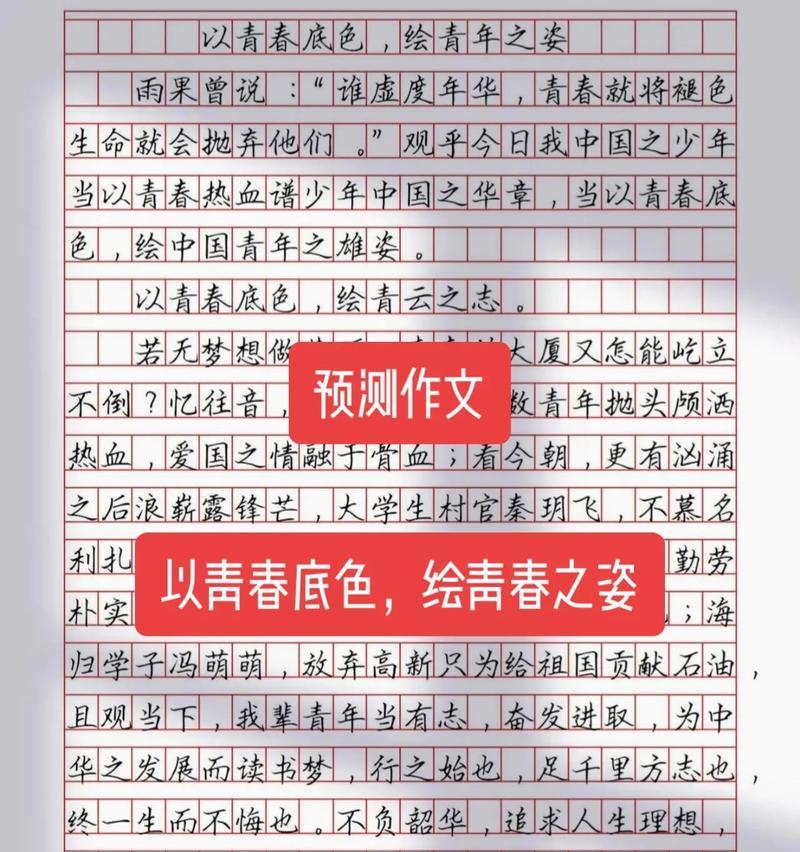 以青春底色，绘青年之姿
雨果曾说：“谁虚度年华，青春就将褪色
生命就会抛弃他们。”观乎今日我中国之少年
当以青春热血谱少年中国之华章，当以青春底
色，绘中国青年之雄姿。
以青春底色，绘青云之志。
若无梦想做 大厦又怎能屹立
预测作文
不倒？忆往音， 数青年抛头颅洒
热血，爱国之情融于骨血；看今朝，更有汹涌
之后浪崭露锋芒，大学生村官秦玥飞，不慕名
利扎 勤劳
以青春底色，绘青春之姿
朴实 ；海
归学子冯萌萌，放弃高新只为给祖国贡献石油，
且观当下，我辈青年当有志，奋发进取，为中
华之发展而读书梦，行之始也，足千里方志也，
终一生而不悔也。不负韶华，追求人生理想，